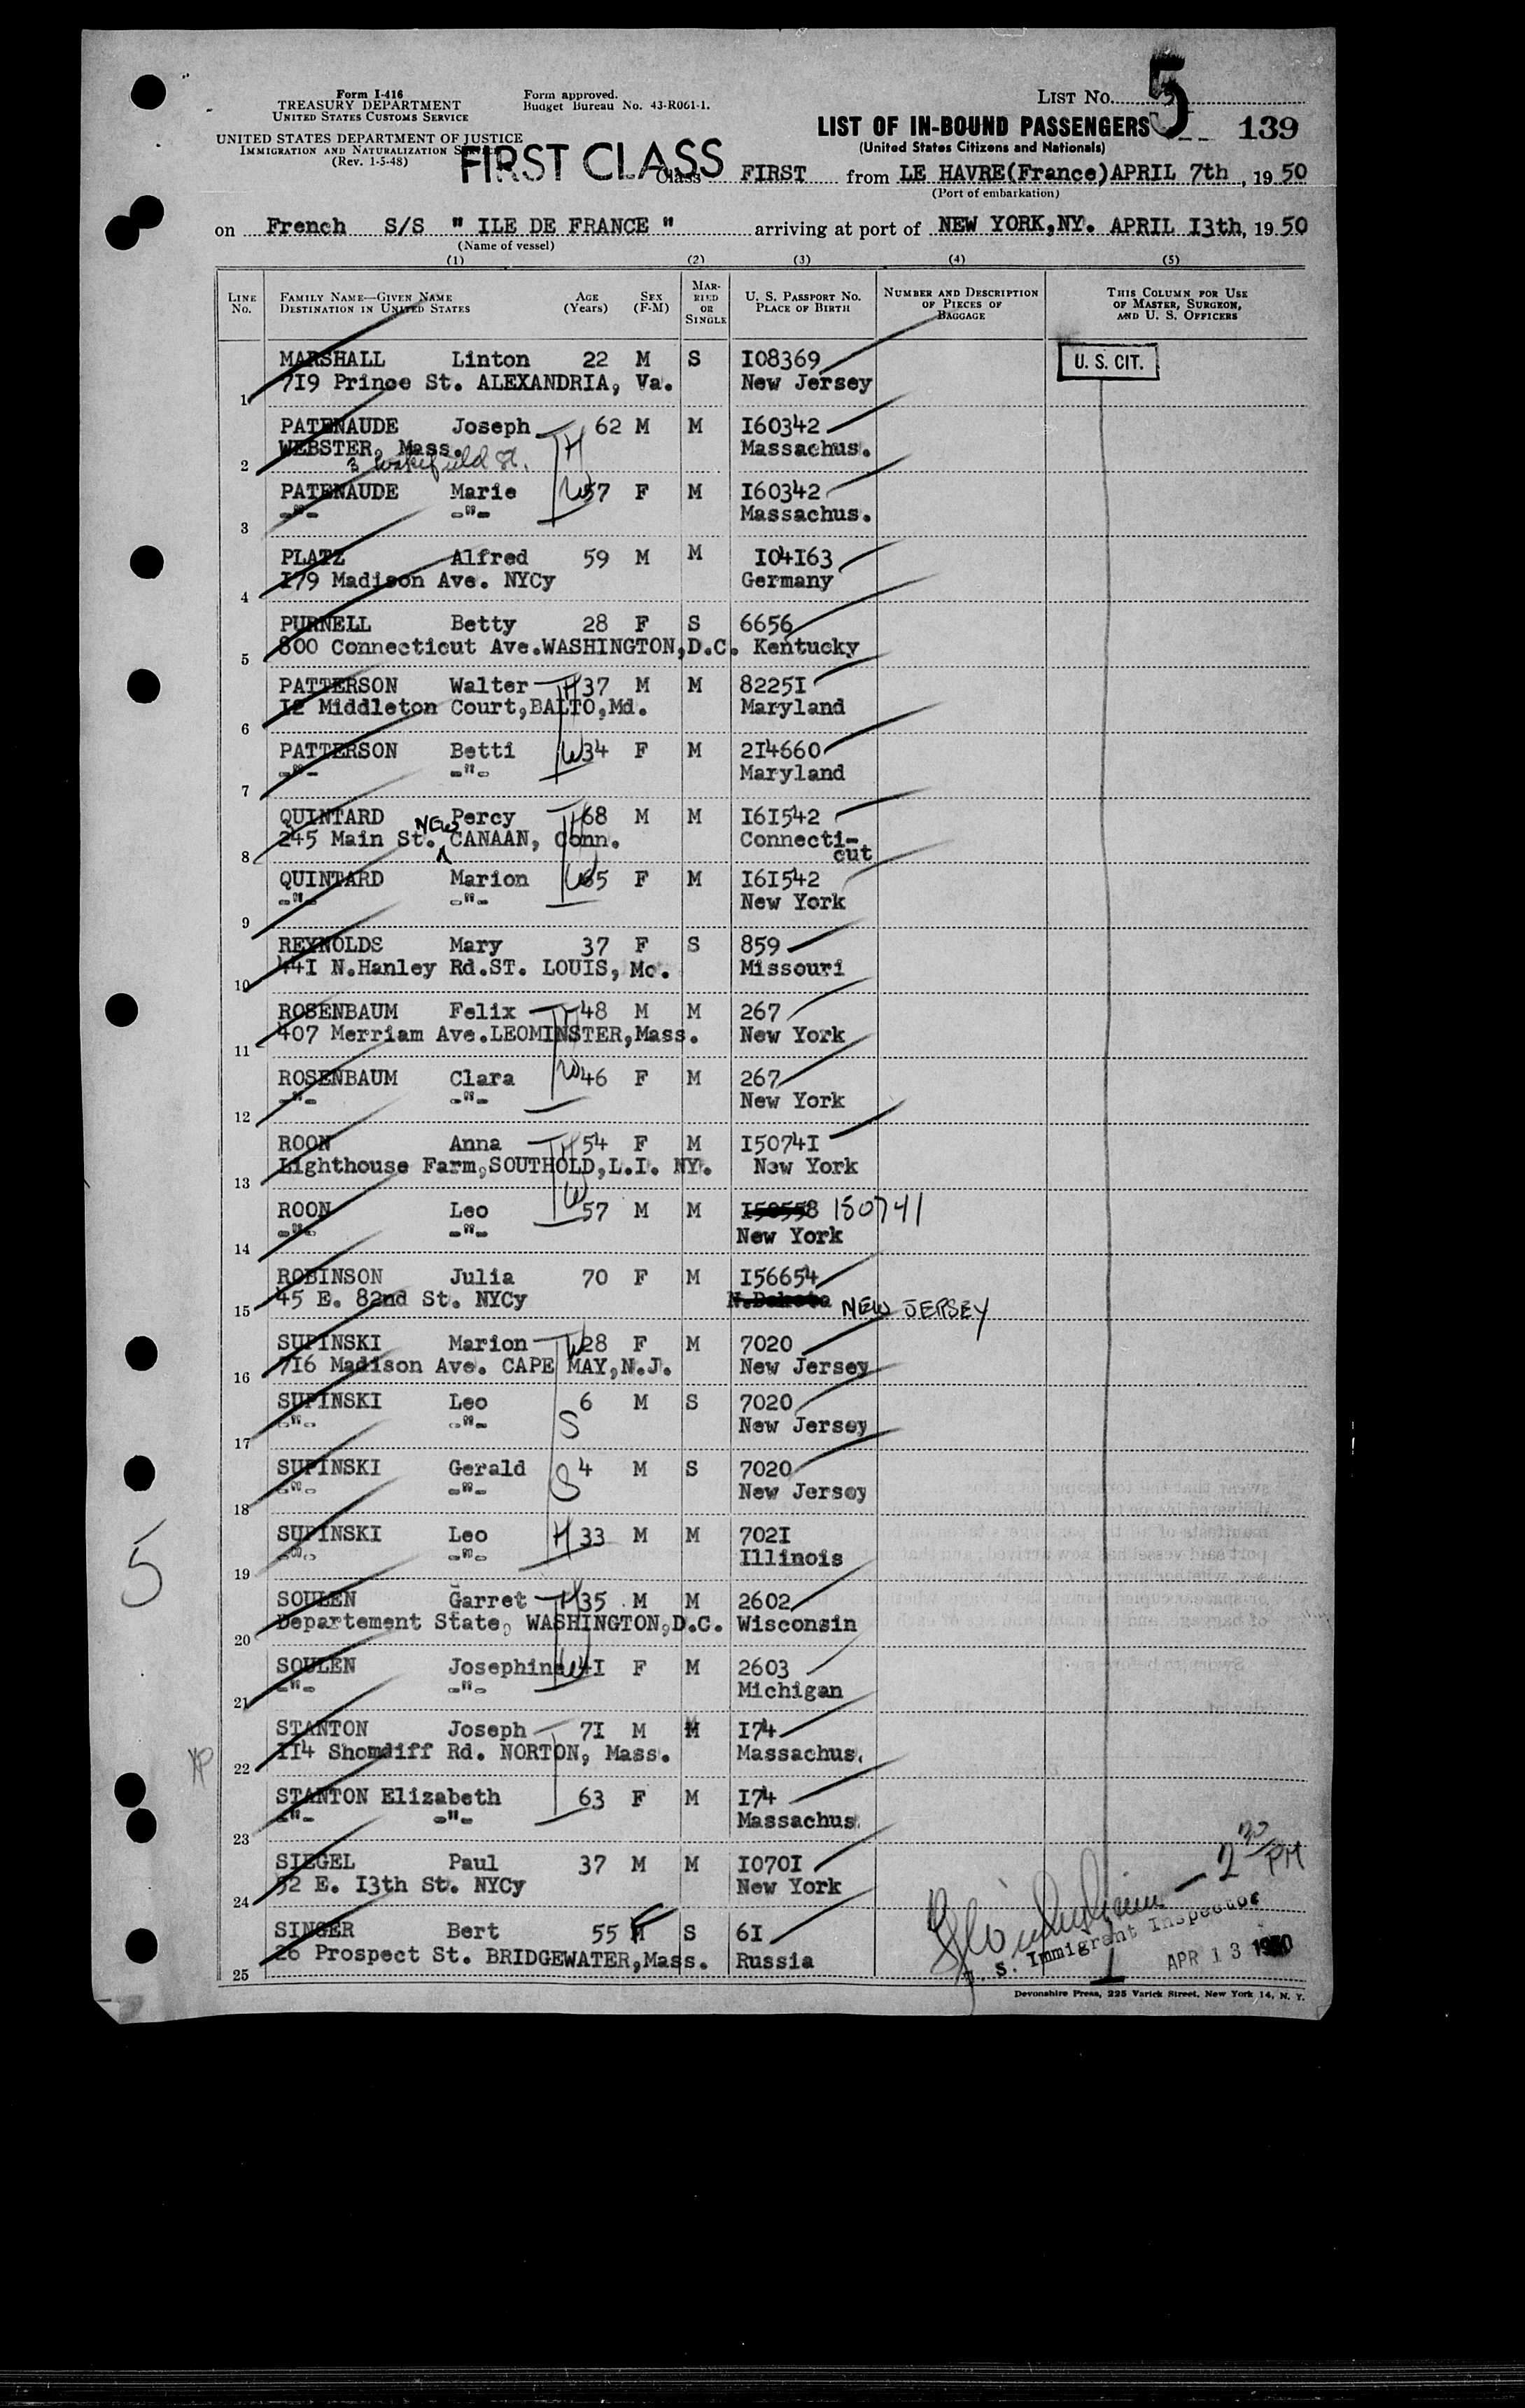 Form I-416
TREASURY DEPARTMENT
UNITED STATES CUSTOMS SERVICE
UNITED STATES DEPARTMENT OF JUSTICE
IMMIGRATION AND NATURALIZATION
(Rev. 1-5-48)
Form approved.
Budget Bureau No. 43-R061-1.
FIRST CLASS
LIST NO. 5
LIST OF IN-BOUND PASSENGERS 139
(United States Citizens and Nationals)
Class FIRST from LE HAVRE(France) APRIL 7th, 1950
(Port of embarkation)
on French S/S " ILE DE FRANCE " arriving at port of NEW YORK,NY. APRIL I3th, 1950
(Name of vessel)
(1) (2) (3) (4) (5)
LINE No. FAMILY NAME—GIVEN NAME DESTINATION IN UNITED STATES AGE (Years) SEX (F-M) MARRIED OR SINGLE U. S. PASSPORT NO. PLACE OF BIRTH NUMBER AND DESCRIPTION OF PIECES OF BAGGAGE THIS COLUMN FOR USE OF MASTER, SURGEON, AND U. S. OFFICERS
MARSHALL Linton 22 M S I08369 U. S. CIT.
1 7I9 Prince St. ALEXANDRIA, Va. New Jersey
PATENAUDE Joseph H 62 M M I60342
WEBSTER, Mass. Massachus.
2 3 Wakefield St.
PATENAUDE Marie W 57 F M I60342
3 -"- -"- Massachus.
PLATZ Alfred 59 M M I04I63
4 I79 Madison Ave. NYCy Germany
PURNELL Betty 28 F S 6656
5 800 Connecticut Ave.WASHINGTON,D.C. Kentucky
PATTERSON Walter H 37 M M 8225I
6 I2 Middleton Court,BALTO,Md. Maryland
PATTERSON Betti W 34 F M 2I4660
7 -"- -"- Maryland
QUINTARD Percy H 68 M M I6I542
8 245 Main St. NEW CANAAN, Conn. Connecti-
cut
QUINTARD Marion W 65 F M I6I542
9 -"- -"- New York
REYNOLDS Mary 37 F S 859
10 44I N.Hanley Rd.ST. LOUIS, Mo. Missouri
ROSENBAUM Felix H 48 M M 267
11 407 Merriam Ave.LEOMINSTER,Mass. New York
ROSENBAUM Clara W 46 F M 267
12 -"- -"- New York
ROON Anna H 54 F M I5074I
13 Lighthouse Farm,SOUTHOLD,L.I. NY. New York
ROON Leo W 57 M M I50558 150741
14 -"- -"- New York
ROBINSON Julia 70 F M I56654
15 45 E. 82nd St. NYCy N.Dakota NEW JERSEY
SUPINSKI Marion W 28 F M 7020
16 7I6 Madison Ave. CAPE MAY,N.J. New Jersey
SUPINSKI Leo S 6 M S 7020
17 -"- -"- New Jersey
SUPINSKI Gerald S 4 M S 7020
18 -"- -"- New Jersey
SUPINSKI Leo H 33 M M 702I
19 -"- -"- Illinois
SOULEN Garret H 35 M M 2602
20 Departement State, WASHINGTON,D.C. Wisconsin
SOULEN Josephine W 4I F M 2603
21 -"- -"- Michigan
STANTON Joseph 7I M M I74
22 II4 Shomdiff Rd. NORTON, Mass. Massachus.
STANTON Elizabeth 63 F M I74
23 -"- -"- Massachus.
SIEGEL Paul 37 M M I070I
24 32 E. I3th St. NYCy New York
2 30 PM
SINGER Bert 55 F S 6I
25 26 Prospect St. BRIDGEWATER,Mass. Russia
U. S. Immigrant Inspector
APR 13 1950
Devonshire Press, 225 Varick Street, New York 14, N. Y.
5